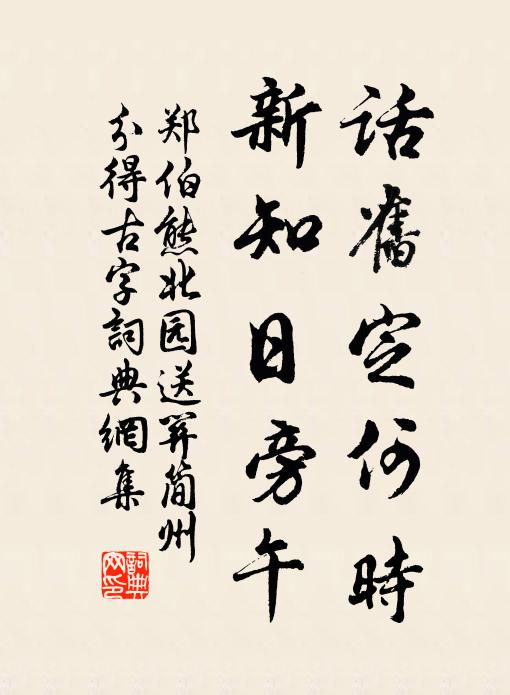 話舊定何時
新知日旁午
郑伯熊北园送羿简州
分得古字詞典網集
詞典网印